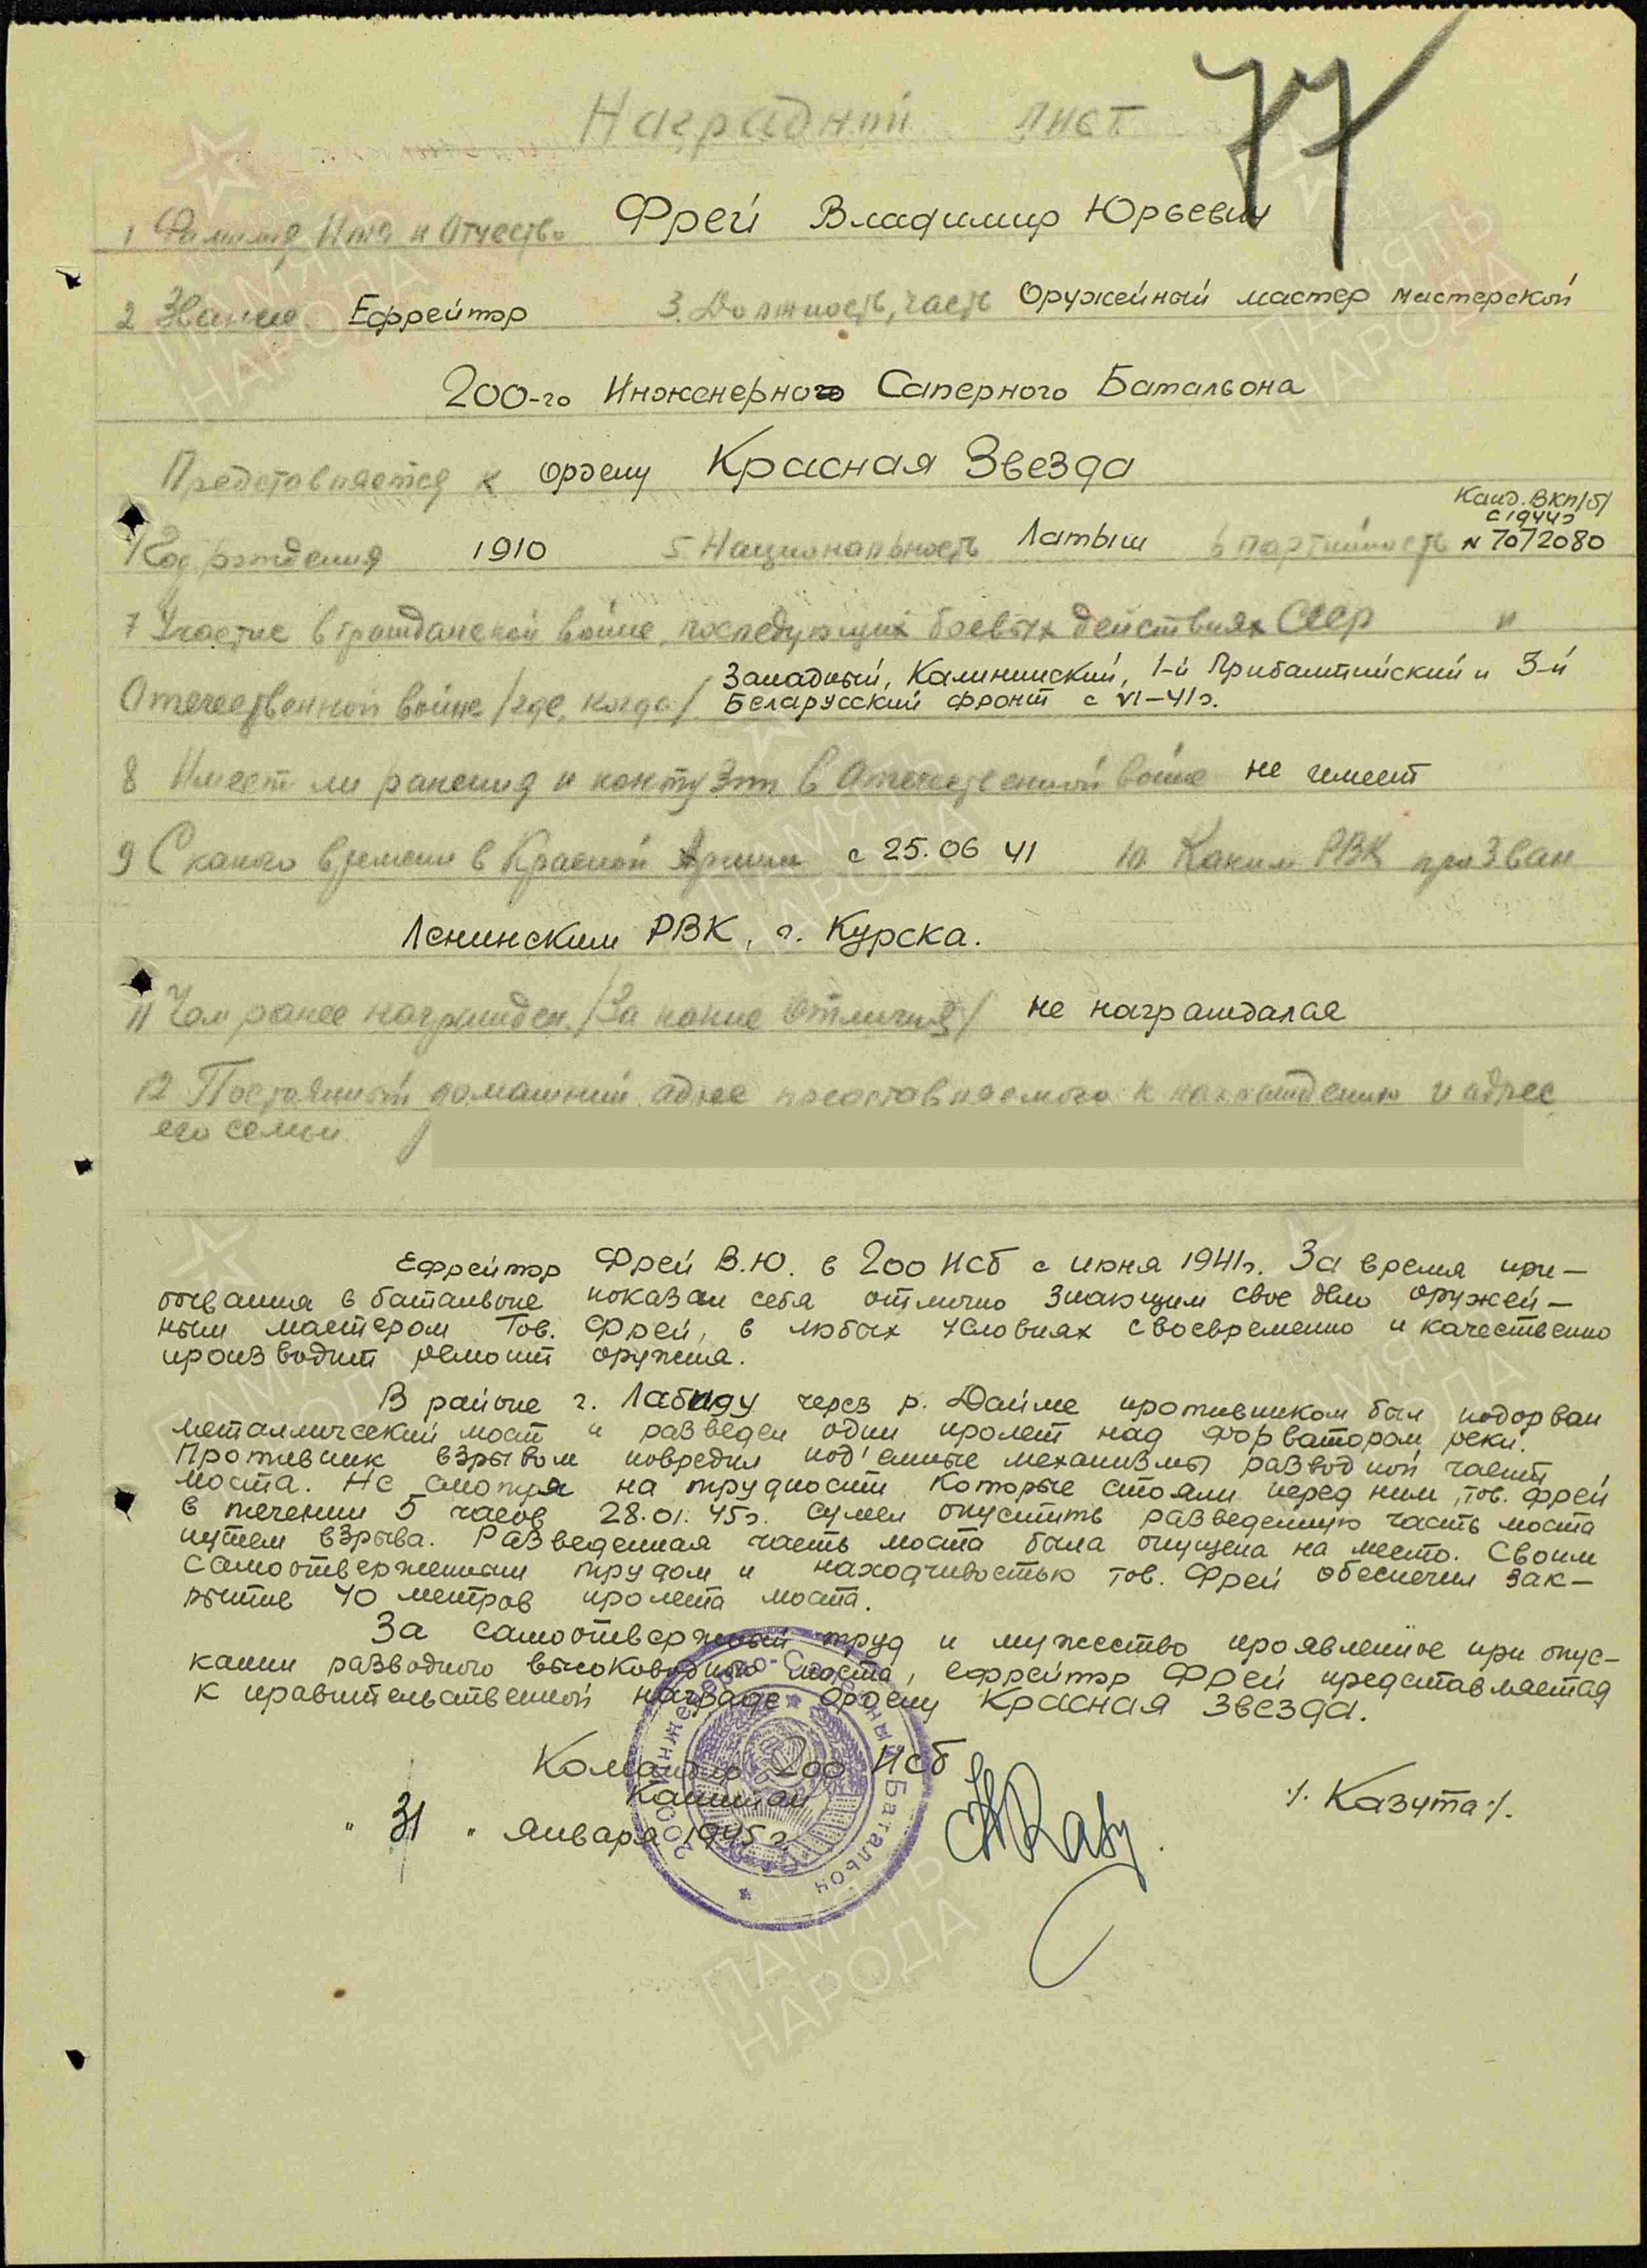 77
Наградной лист
1 Фамилия, Имя и Отчество Фрей Владимир Юрьевич
2 Звание Ефрейтор 3. Должность, часть Оружейный мастер мастерской
200-го Инженерного Саперного Батальона
Представляется к ордену Красная Звезда
Канд. ВКП/б/
с 1944г
4 Год рождения 1910 5. Национальность Латыш 6 партийность № 7072080
7 Участие в гражданской войне, последующих боевых действиях СССР и
Отечественной войне /где, когда/ Западный, Калининский, 1-й Прибалтийский и 3-й
Беларусский фронт с VI-41г.
8 Имеет ли ранения и контузии в Отечественной войне не имеет
9 С какого времени в Красной Армии с 25.06 41 10. Каким РВК призван
Ленинским РВК, г. Курска.
11 Чем ранее награжден /За какие отличия/ не награждался
12 Постоянный домашний адрес представляемого к награждению и адрес
его семьи.
Ефрейтор Фрей В.Ю. в 200 ИСБ с июня 1941г. За время при-
бывания в батальоне показал себя отлично знающим свое дело оружей-
ным мастером. Тов. Фрей, в любых условиях своевременно и качественно
производит ремонт оружия.
В районе г. Лабиду через р. Дайме противником был подорван
металлический мост и разведен один пролет над форватором реки.
Противник взрывом повредил под'емные механизмы разводной части
моста. Не смотря на трудности которые стояли перед ним, тов. Фрей
в течении 5 часов 28.01.45г. сумел опустить разведенную часть моста
путем взрыва. Разведенная часть моста была опущена на место. Своим
самоотверженным трудом и находчивостью тов. Фрей обеспечил зак-
рытие 40 метров пролета моста.
За самоотверженый труд и мужество проявленное при опус-
кании разводного высоководного моста, ефрейтор Фрей представляется
к правительственной награде ордену Красная Звезда.
Командир 200 ИСБ
Капитан /. Казута ./.
" 31 " января 1945г
200 Инженерно-Саперный Батальон
ПАМЯТЬ
НАРОДА